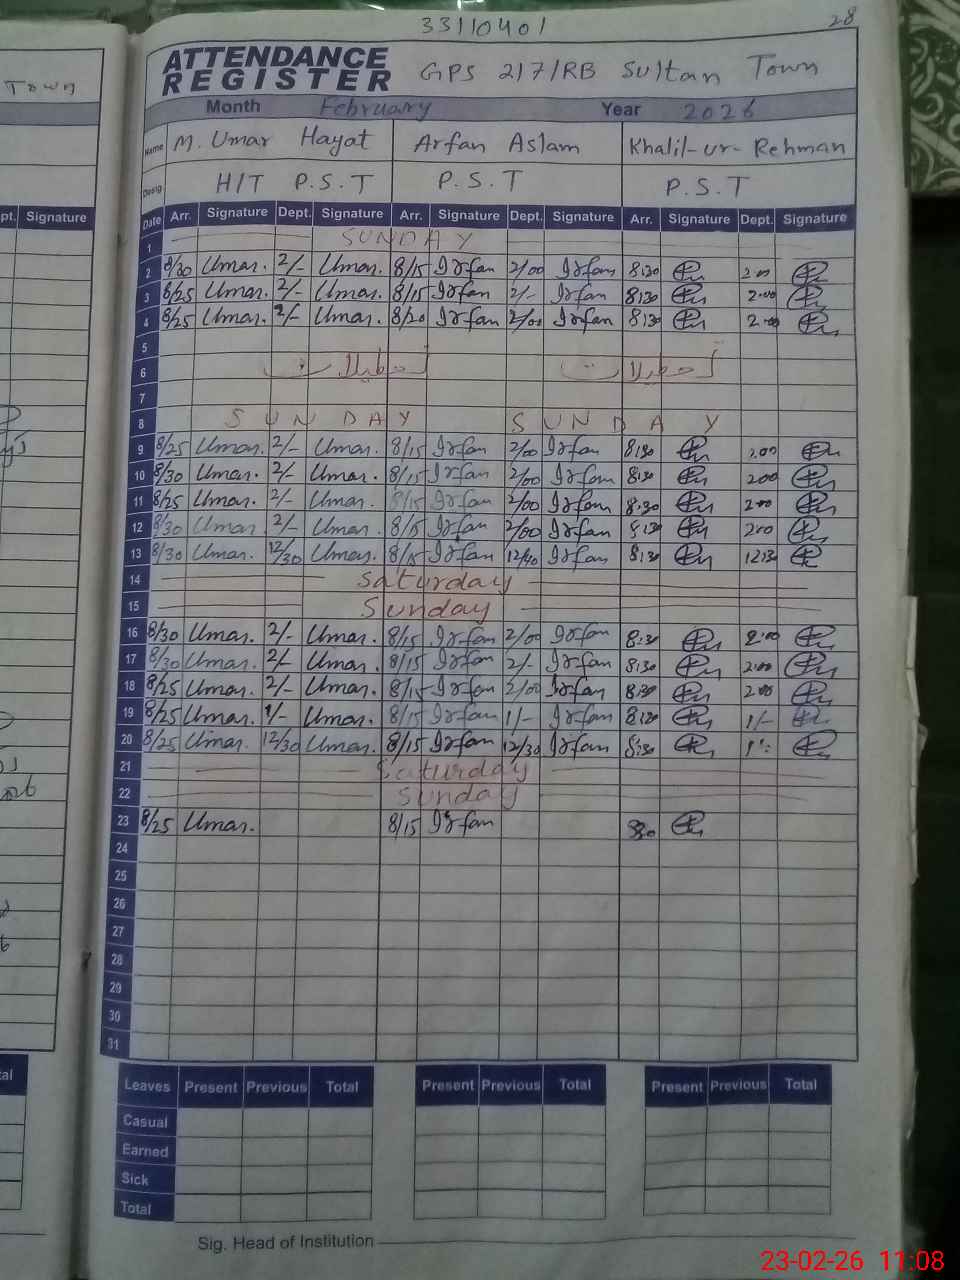 33110401
28
Town
ATTENDANCE REGISTER GPS 217/RB Sultan Town
Month February Year 2026
Name M. Umar Hayat Arfan Aslam Khalil-ur-Rehman
Desig HIT P.S.T P.S.T P.S.T
pt. Signature
Date Arr. Signature Dept. Signature Arr. Signature Dept. Signature Arr. Signature Dept. Signature
1 SUNDAY
2 8/30 Umar. 2/- Umar. 8/15 Irfan 2/00 Irfan 8:30 2:00
3 8/25 Umar. 2/- Umar. 8/15 Irfan 2/- Irfan 8:30 2:00
4 8/25 Umar. 2/- Umar. 8/20 Irfan 2/00 Irfan 8:30 2:00
5
6 تعطیلات تعطیلات
7
8 SUNDAY SUNDAY
9 8/25 Umar. 2/- Umar. 8/15 Irfan 2/00 Irfan 8:30 2:00
10 8/30 Umar. 2/- Umar. 8/15 Irfan 2/00 Irfan 8:30 2:00
11 8/25 Umar. 2/- Umar. 8/15 Irfan 2/00 Irfan 8:30 2:00
12 8/30 Umar. 2/- Umar. 8/15 Irfan 2/00 Irfan 8:30 2:00
13 8/30 Umar. 12/30 Umar. 8/15 Irfan 12/40 Irfan 8:30 12:30
14 Saturday
15 Sunday
16 8/30 Umar. 2/- Umar. 8/15 Irfan 2/00 Irfan 8:30 2:00
17 8/30 Umar. 2/- Umar. 8/15 Irfan 2/- Irfan 8:30 2:00
18 8/25 Umar. 2/- Umar. 8/15 Irfan 2/00 Irfan 8:30 2:00
19 8/25 Umar. 1/- Umar. 8/15 Irfan 1/- Irfan 8:30 1/-
20 8/25 Umar. 12/30 Umar. 8/15 Irfan 12/30 Irfan 8:30
21 Saturday
22 Sunday
23 8/25 Umar. 8/15 Irfan 8:30
24
25
26
27
28
29
30
31
Leaves Present Previous Total Present Previous Total Present Previous Total
Casual
Earned
Sick
Total
Sig. Head of Institution
23-02-26 11:08